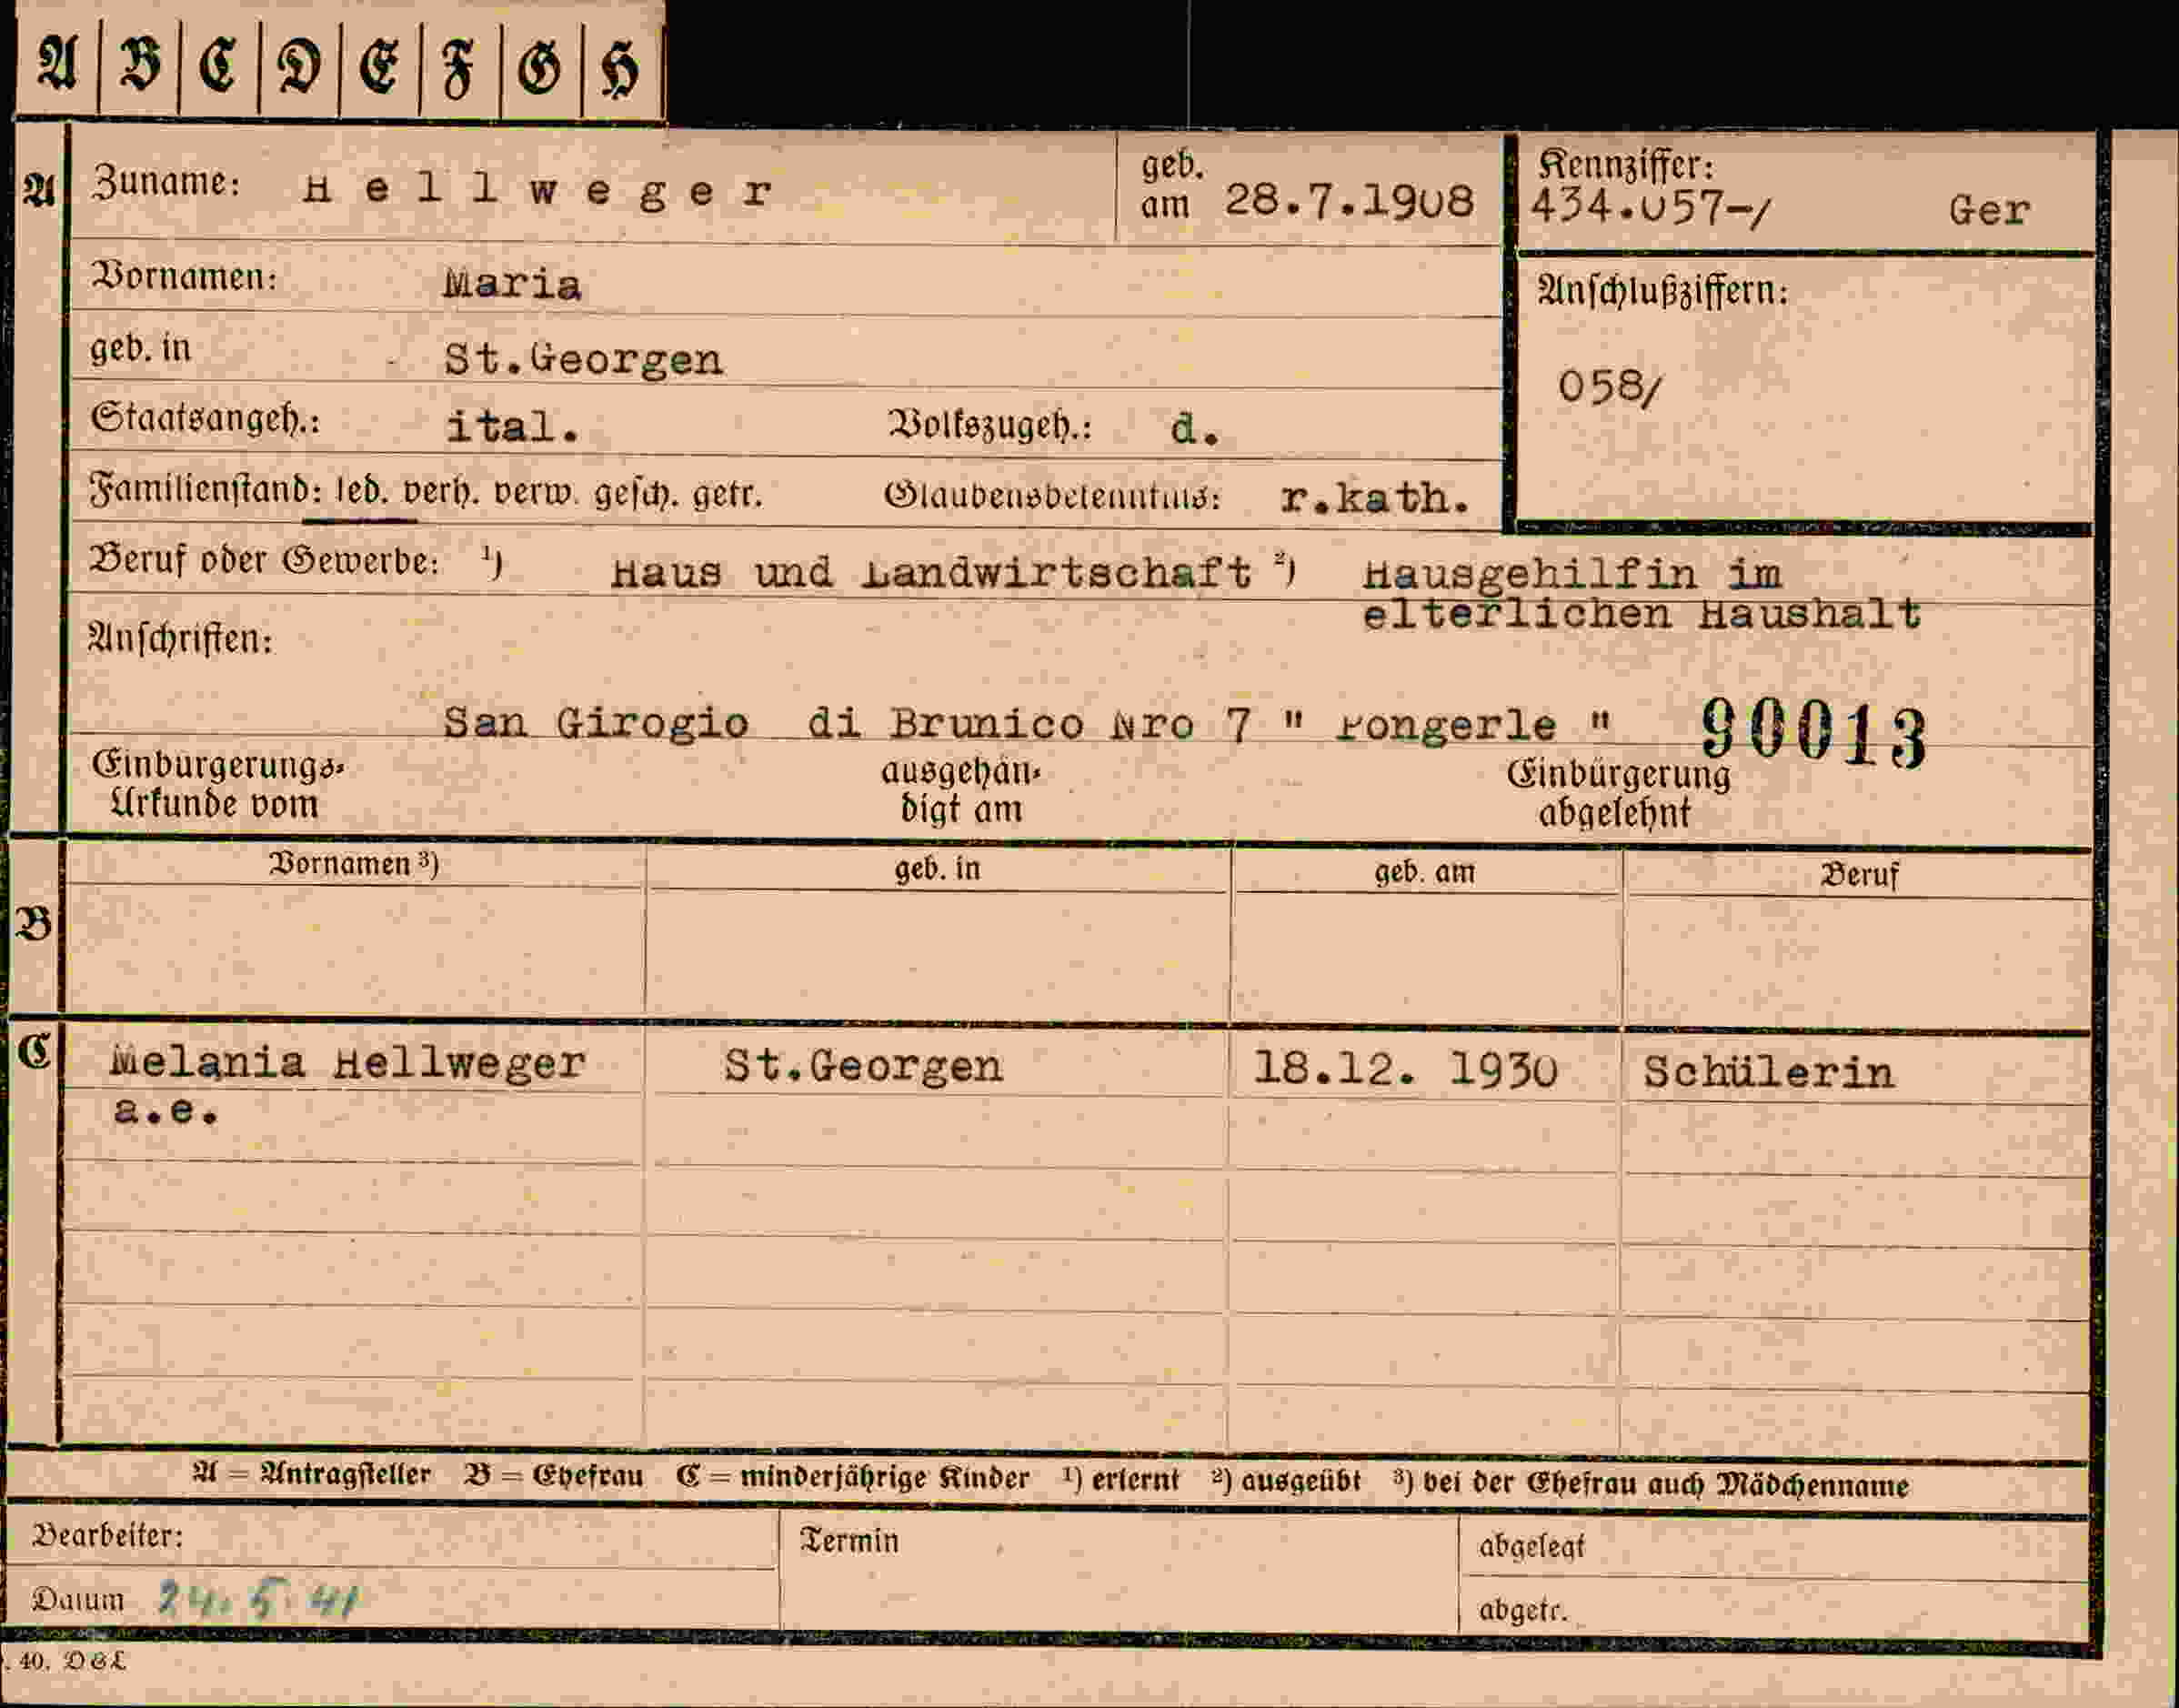 A | B | C | D | E | F | G | H
A Zuname: Hellweger geb. am 28.7.1908 Kennziffer: 434.057-/ Ger
Vornamen: Maria Anschlußziffern:
geb. in St.Georgen 058/
Staatsangeh.: ital. Volkszugeh.: d.
Familienstand: led. verh. verw. gesch. getr. Glaubensbekenntnis: r.kath.
Beruf oder Gewerbe: ¹) Haus und Landwirtschaft ²) Hausgehilfin im
elterlichen Haushalt
Anschriften:
San Girogio di Brunico Nro 7 " Pongerle " 90013
Einbürgerungs- ausgehän- Einbürgerung
Urkunde vom digt am abgelehnt
Vornamen ³) geb. in geb. am Beruf
B
C Melania Hellweger St.Georgen 18.12. 1930 Schülerin
a.e.
A = Antragsteller B = Ehefrau C = minderjährige Kinder ¹) erlernt ²) ausgeübt ³) bei der Ehefrau auch Mädchenname
Bearbeiter: Termin abgelegt
Datum 24. 5. 41 abgetr.
. 40. DGL